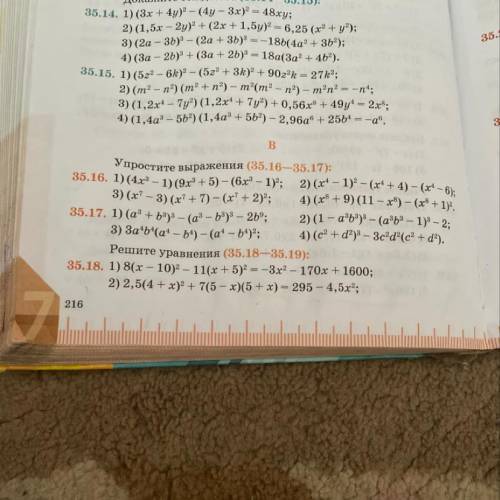 35.14. 1) (3x + 4y)² – (4y – 3x)² = 48xy;
2) (1,5x – 2y)² + (2x + 1,5y)² = 6,25 (x² + y²);
3) (2a – 3b)³ – (2a + 3b)³ = –18b(4a² + 3b²);
4) (3a – 2b)³ + (3a + 2b)³ = 18a(3a² + 4b²).
35.15. 1) (5z² – 6k)² – (5z² + 3k)² + 90z²k = 27k²;
2) (m² – n²) (m² + n²) – m²(m² – n²) – m²n² = –n⁴;
3) (1,2x⁴ – 7y²) (1,2x⁴ + 7y²) + 0,56x⁸ + 49y⁴ = 2x⁸;
4) (1,4a³ – 5b²) (1,4a³ + 5b²) – 2,96a⁶ + 25b⁴ = –a⁶.
В
Упростите выражения (35.16—35.17):
35.16. 1) (4x³ – 1) (9x³ + 5) – (6x³ – 1)²; 2) (x⁴ – 1)² – (x⁴ + 4) – (x⁴ – 6);
3) (x⁷ – 3) (x⁷ + 7) – (x⁷ + 2)²; 4) (x⁸ + 9) (11 – x⁸) – (x⁸ + 1)².
35.17. 1) (a³ + b³)³ – (a³ – b³)³ – 2b⁹; 2) (1 – a³b³)³ – (a³b³ – 1)³ – 2;
3) 3a⁴b⁴(a⁴ – b⁴) – (a⁴ – b⁴)²; 4) (c² + d²)³ – 3c²d²(c² + d²).
Решите уравнения (35.18—35.19):
35.18. 1) 8(x – 10)² – 11(x + 5)² = –3x² – 170x + 1600;
2) 2,5(4 + x)² + 7(5 – x)(5 + x) = 295 – 4,5x²;
216
7